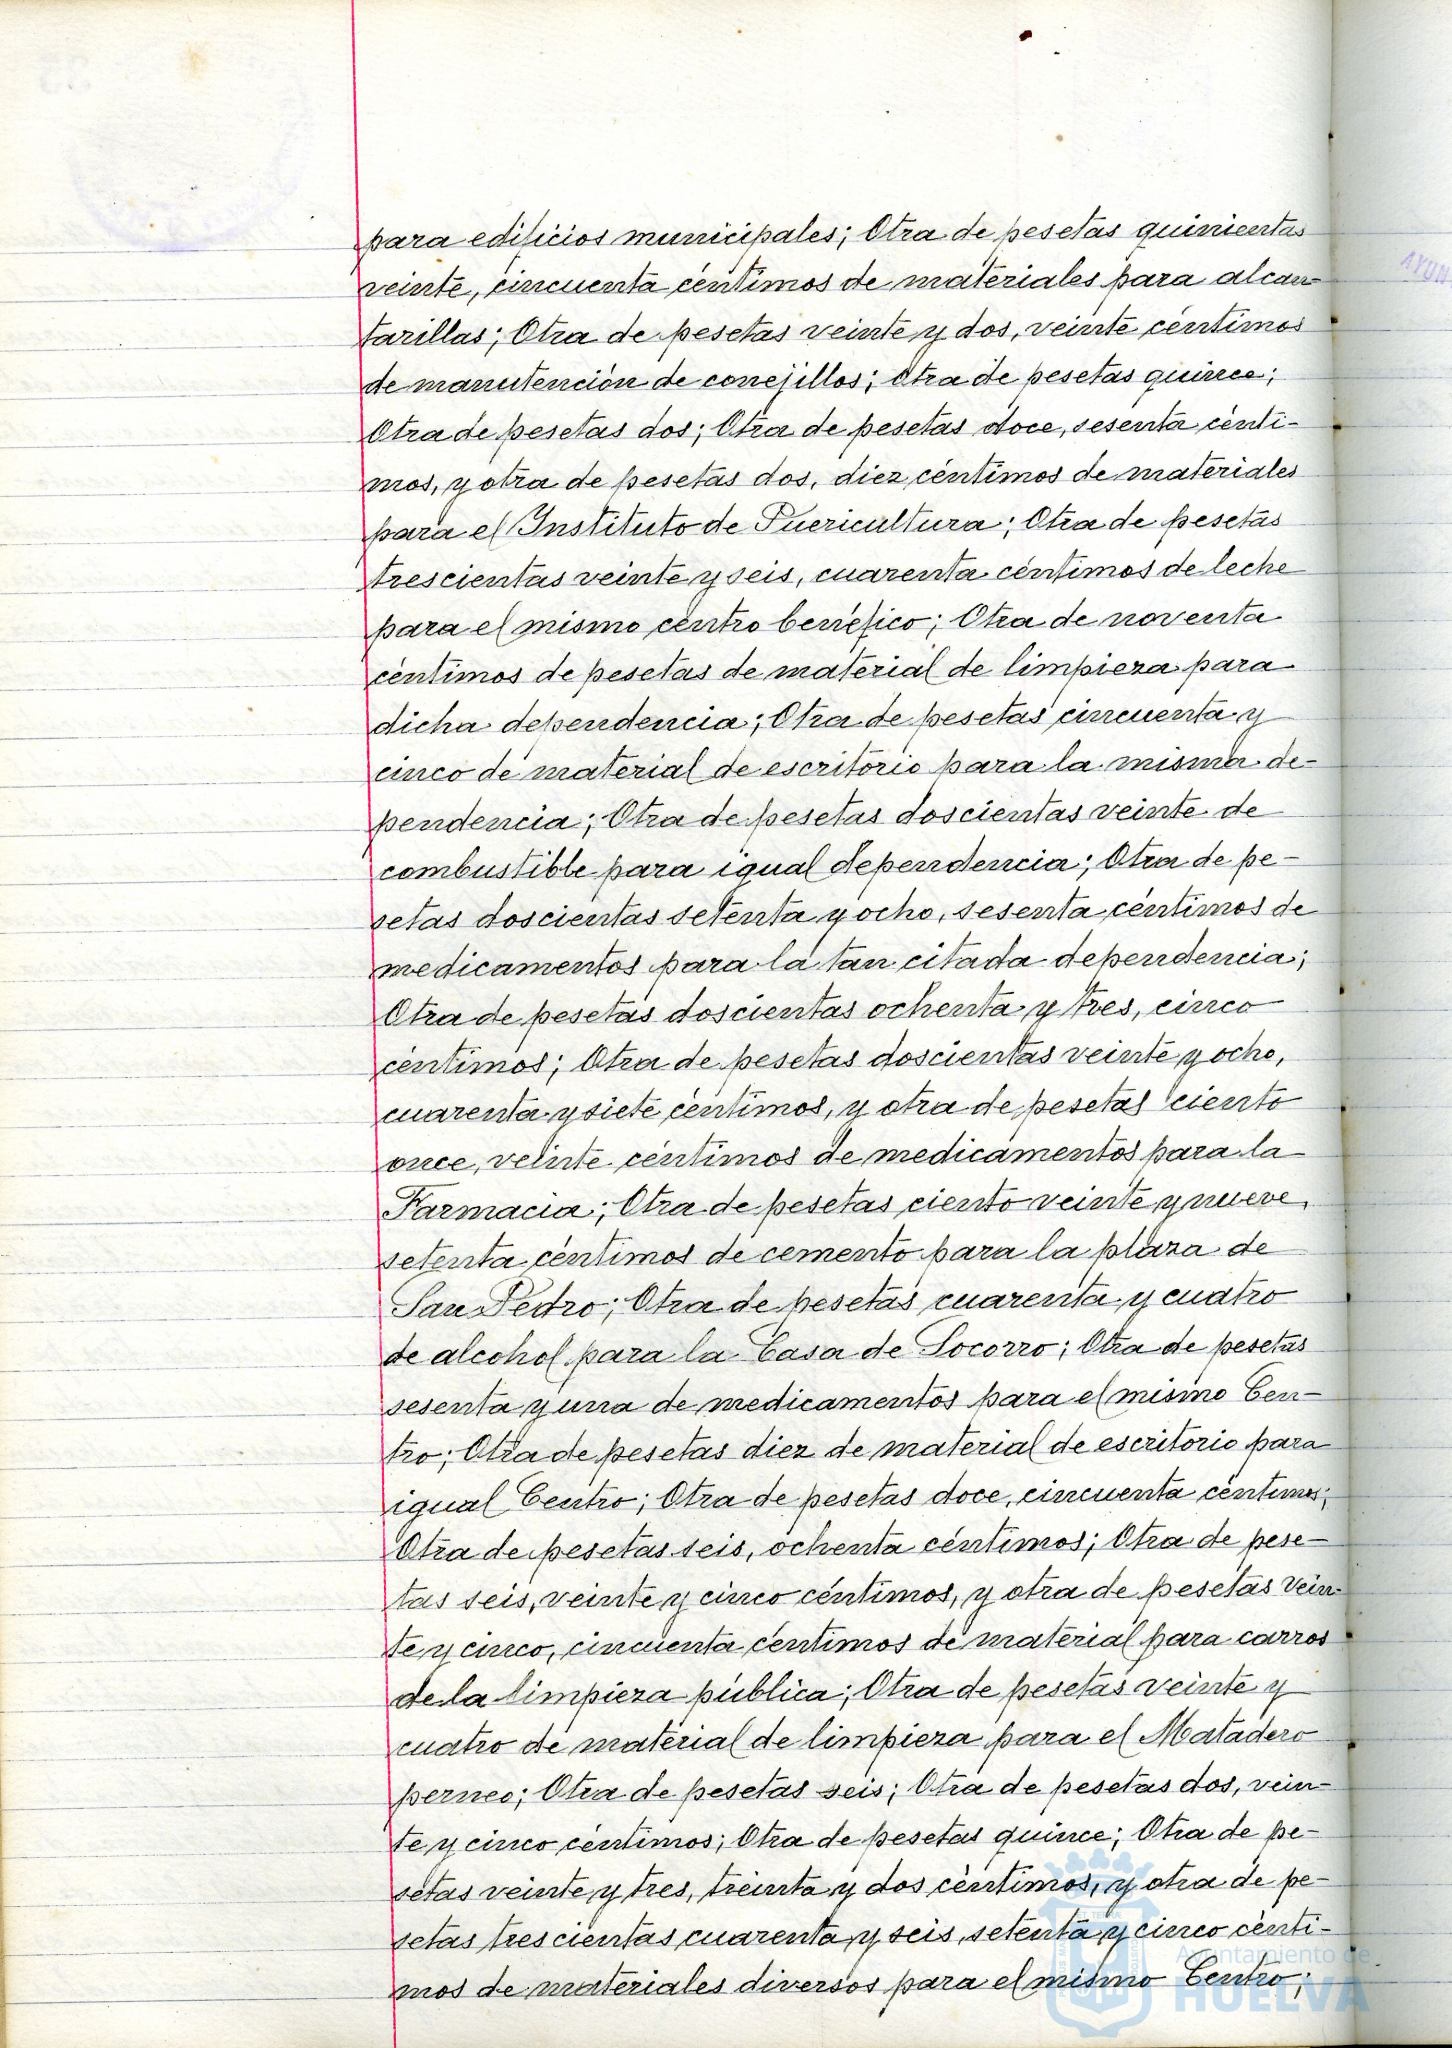 para edificios municipales; Otra de pesetas quinientas
veinte, cincuenta céntimos de materiales para alcan-
tarillas; Otra de pesetas veinte y dos, veinte céntimos
de manutención de conejillos; Otra de pesetas quince;
Otra de pesetas dos; Otra de pesetas doce, sesenta cénti-
mos, y otra de pesetas dos, diez céntimos de materiales
para el Instituto de Puericultura; Otra de pesetas
trescientas veinte y seis, cuarenta céntimos de leche
para el mismo centro benéfico; Otra de noventa
céntimos de pesetas de material de limpieza para
dicha dependencia; Otra de pesetas cincuenta y
cinco de material de escritorio para la misma de-
pendencia; Otra de pesetas doscientas veinte de
combustible para igual dependencia; Otra de pe-
setas doscientas setenta y ocho, sesenta céntimos de
medicamentos para la tan citada dependencia;
Otra de pesetas doscientas ochenta y tres, cinco
céntimos; Otra de pesetas doscientas veinte y ocho,
cuarenta y siete céntimos, y otra de pesetas ciento
once, veinte céntimos de medicamentos para la
Farmacia; Otra de pesetas ciento veinte y nueve,
setenta céntimos de cemento para la plaza de
San Pedro; Otra de pesetas cuarenta y cuatro
de alcohol para la Casa de Socorro; Otra de pesetas
sesenta y una de medicamentos para el mismo Cen-
tro; Otra de pesetas diez de material de escritorio para
igual Centro; Otra de pesetas doce, cincuenta céntimos;
Otra de pesetas seis, ochenta céntimos; Otra de pese-
tas seis, veinte y cinco céntimos, y otra de pesetas vein-
te y cinco, cincuenta céntimos de material para carros
de la limpieza pública; Otra de pesetas veinte y
cuatro de material de limpieza para el Matadero
perneo; Otra de pesetas seis; Otra de pesetas dos, vein-
te y cinco céntimos; Otra de pesetas quince; Otra de pe-
setas veinte y tres, treinta y dos céntimos, y otra de pe-
setas trescientas cuarenta y seis, setenta y cinco cénti-
mos de materiales diversos para el mismo Centro;
Ayuntamiento de
HUELVA
AYUN